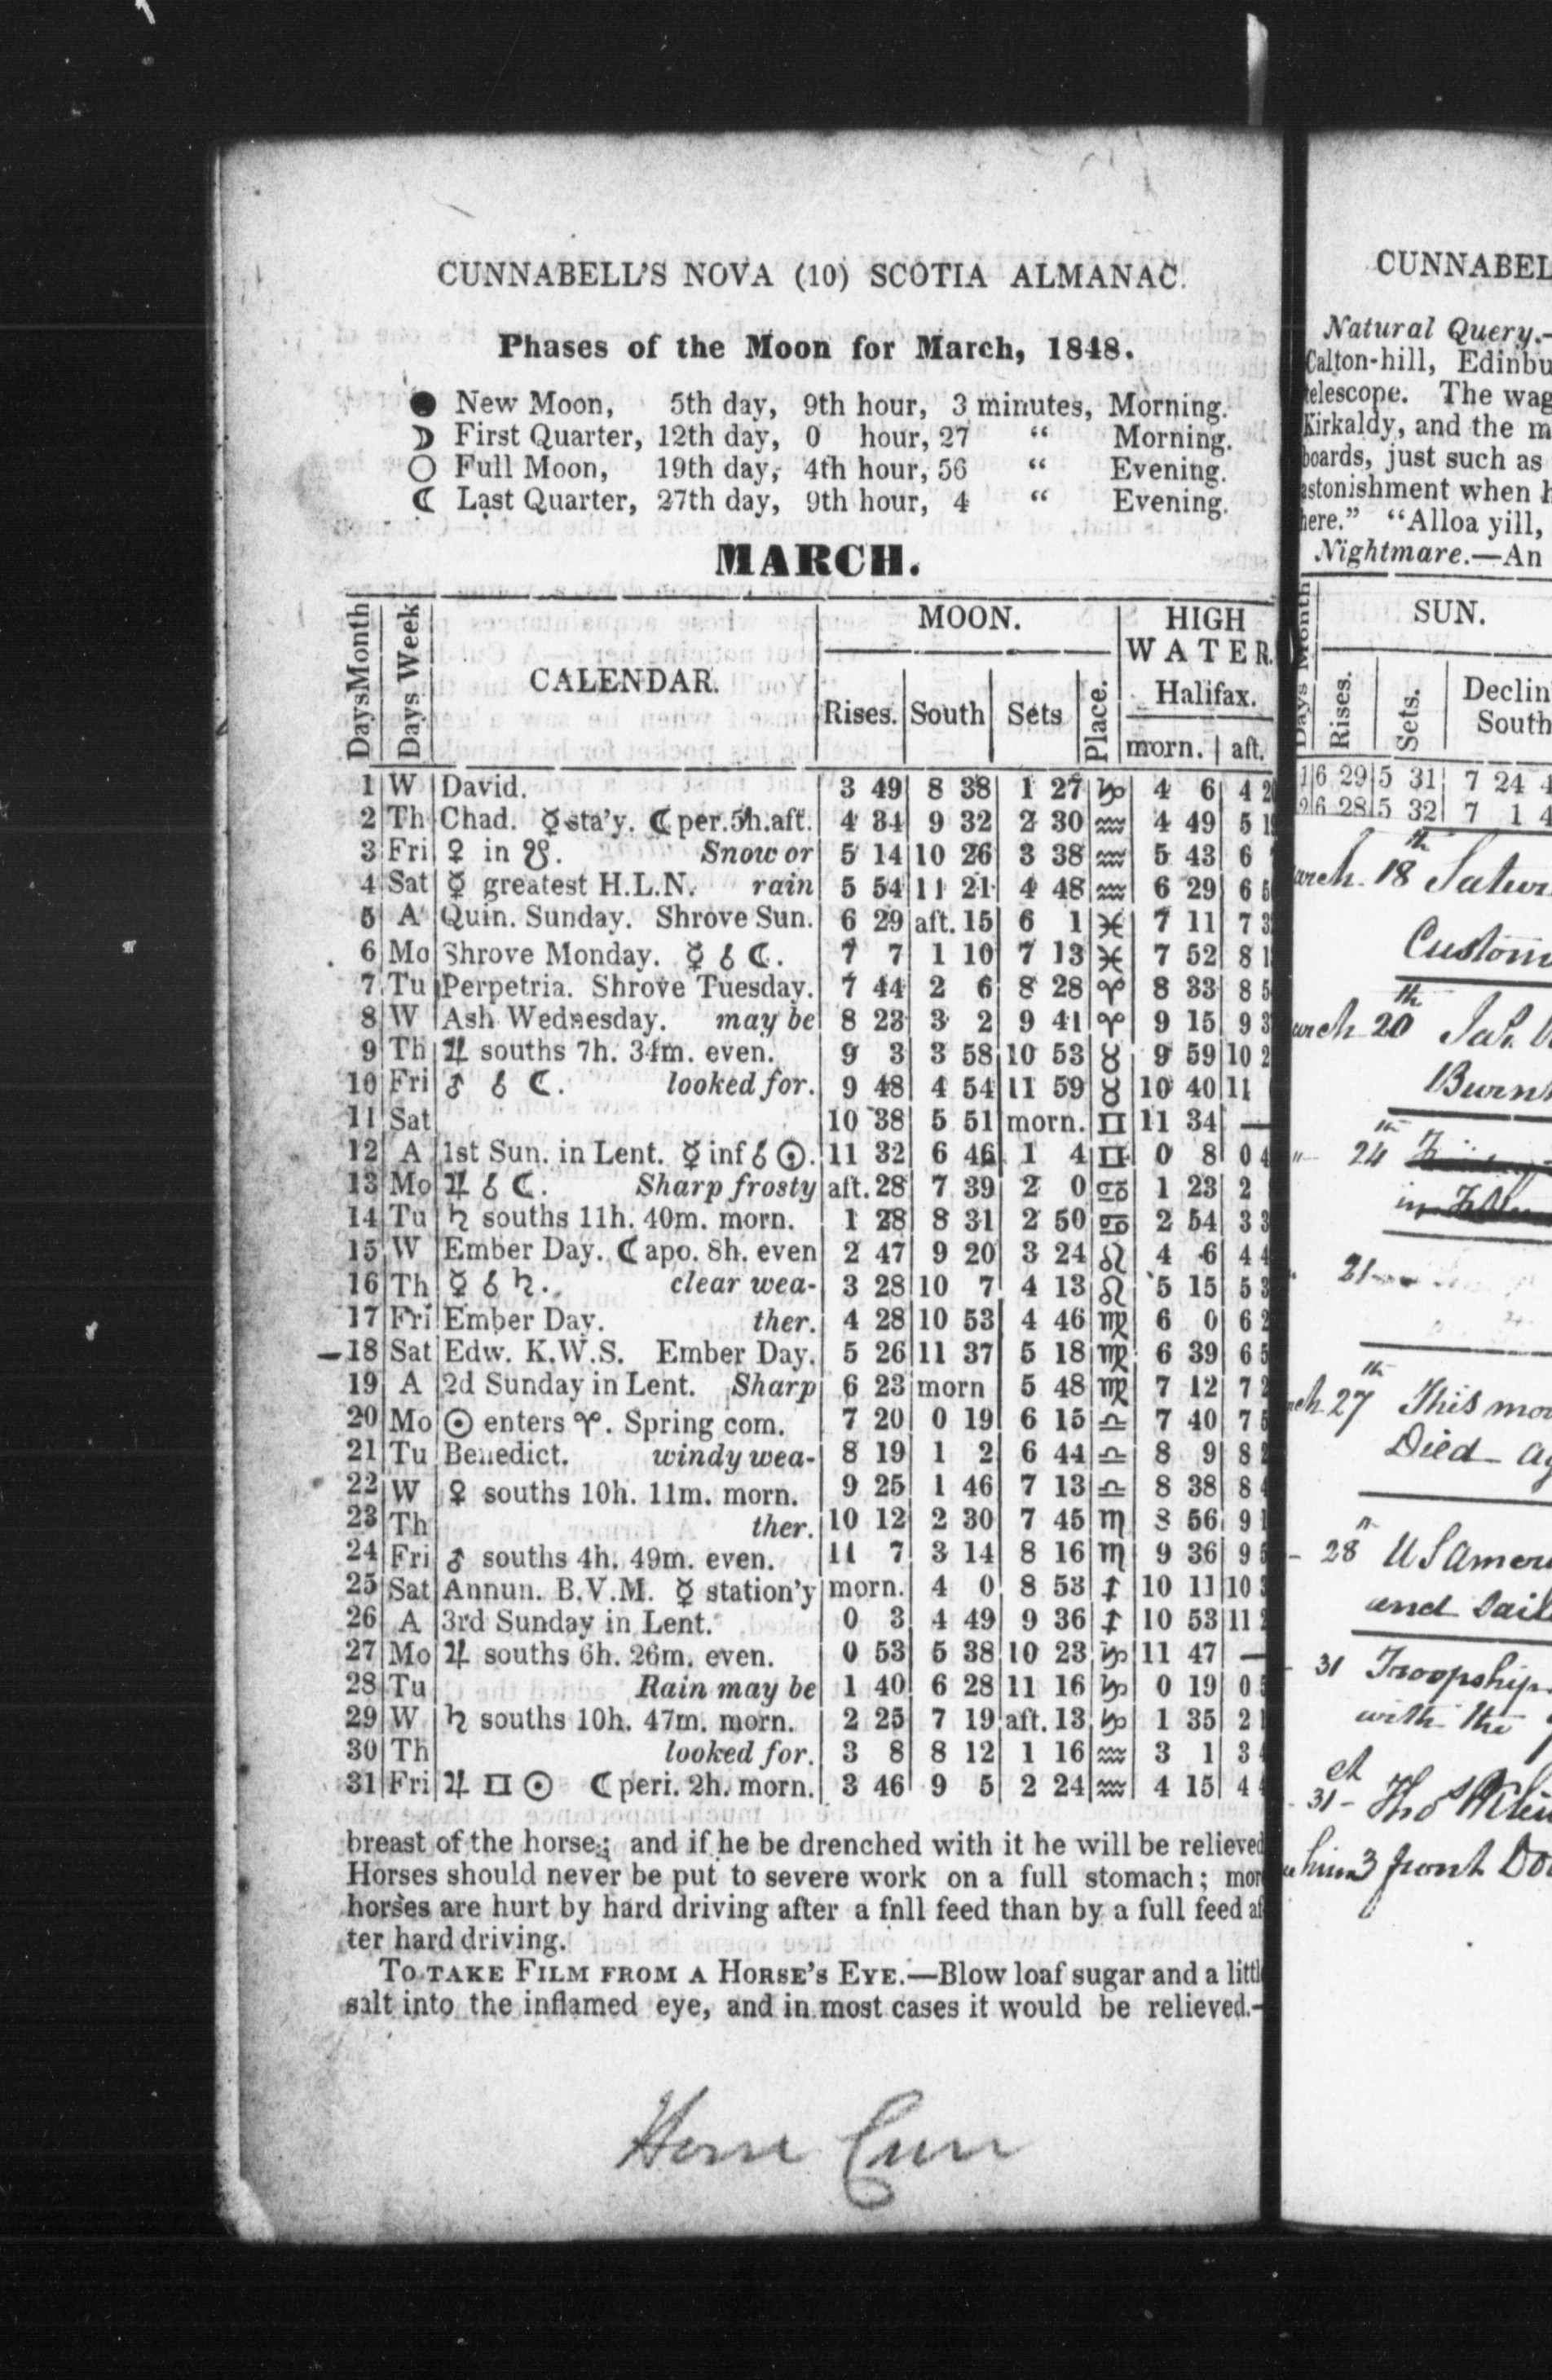 CUNNABELL'S NOVA (10) SCOTIA ALMANAC.
Phases of the Moon for March, 1848.
● New Moon, 5th day, 9th hour, 3 minutes, Morning.
☽ First Quarter, 12th day, 0 hour, 27 “ Morning.
○ Full Moon, 19th day, 4th hour, 56 “ Evening.
☾ Last Quarter, 27th day, 9th hour, 4 “ Evening.
MARCH.
Days Month
Days Week
CALENDAR.
MOON.
HIGH
WATER.
Rises. South Sets Place.
Halifax.
morn. aft.
1 W David. 3 49 8 38 1 27 ♑ 4 6 4
2 Th Chad. ☿ sta'y. ☾ per. 5h. aft. 4 34 9 32 2 30 ♒ 4 49 5
3 Fri ♀ in ☋. Snow or 5 14 10 26 3 38 ♒ 5 43 6
4 Sat ☿ greatest H.L.N. rain 5 54 11 21 4 48 ♒ 6 29 6
5 A Quin. Sunday. Shrove Sun. 6 29 aft. 15 6 1 ♓ 7 11 7
6 Mo Shrove Monday. ☿ ☌ ☾. 7 7 1 10 7 13 ♓ 7 52 8
7 Tu Perpetria. Shrove Tuesday. 7 44 2 6 8 28 ♈ 8 33 8
8 W Ash Wednesday. may be 8 23 3 2 9 41 ♈ 9 15 9
9 Th ♃ souths 7h. 34m. even. 9 3 3 58 10 53 ♉ 9 59 10
10 Fri ♂ ☌ ☾. looked for. 9 48 4 54 11 59 ♉ 10 40 11
11 Sat 10 38 5 51 morn. ♊ 11 34 —
12 A 1st Sun. in Lent. ☿ inf ☌ ☉. 11 32 6 46 1 4 ♊ 0 8 0
13 Mo ♃ ☌ ☾. Sharp frosty aft. 28 7 39 2 0 ♋ 1 23 2
14 Tu ♄ souths 11h. 40m. morn. 1 28 8 31 2 50 ♋ 2 54 3
15 W Ember Day. ☾ apo. 8h. even 2 47 9 20 3 24 ♌ 4 6 4
16 Th ☿ ☌ ♄. clear wea- 3 28 10 7 4 13 ♌ 5 15 5
17 Fri Ember Day. ther. 4 28 10 53 4 46 ♍ 6 0 6
18 Sat Edw. K.W.S. Ember Day. 5 26 11 37 5 18 ♍ 6 39 6
19 A 2d Sunday in Lent. Sharp 6 23 morn 5 48 ♍ 7 12 7
20 Mo ☉ enters ♈. Spring com. 7 20 0 19 6 15 ♎ 7 40 7
21 Tu Benedict. windy wea- 8 19 1 2 6 44 ♎ 8 9 8
22 W ♀ souths 10h. 11m. morn. 9 25 1 46 7 13 ♎ 8 38 8
23 Th ther. 10 12 2 30 7 45 ♏ 8 56 9
24 Fri ♂ souths 4h. 49m. even. 11 7 3 14 8 16 ♏ 9 36 9
25 Sat Annun. B.V.M. ☿ station'y morn. 4 0 8 53 ♐ 10 11 10
26 A 3rd Sunday in Lent. 0 3 4 49 9 36 ♐ 10 53 11
27 Mo ♃ souths 6h. 26m. even. 0 53 5 38 10 23 ♑ 11 47 —
28 Tu Rain may be 1 40 6 28 11 16 ♑ 0 19 0
29 W ♄ souths 10h. 47m. morn. 2 25 7 19 aft. 13 ♑ 1 35 2
30 Th looked for. 3 8 8 12 1 16 ♒ 3 1 3
31 Fri ♃ □ ☉ ☾ peri. 2h. morn. 3 46 9 5 2 24 ♒ 4 15 4
breast of the horse; and if he be drenched with it he will be relieved
Horses should never be put to severe work on a full stomach; mor
horses are hurt by hard driving after a fnll feed than by a full feed af
ter hard driving.
TO TAKE FILM FROM A HORSE'S EYE.—Blow loaf sugar and a littl
salt into the inflamed eye, and in most cases it would be relieved.—
CUNNABEL
Natural Query.—
Calton-hill, Edinbu
telescope. The wag
Kirkaldy, and the m
boards, just such as
astonishment when h
here.” “Alloa yill,
Nightmare.—An
Days Month
SUN.
Rises. Sets. Declin
South
1 6 29 5 31 7 24 4
2 6 28 5 32 7 1 4
arch 18th Satur
Custom
arch 20th
Burn
24
21
27th This mor
Died
28 U S Amer
and Sail
31 Troopship
with the
31
him 3 front Do